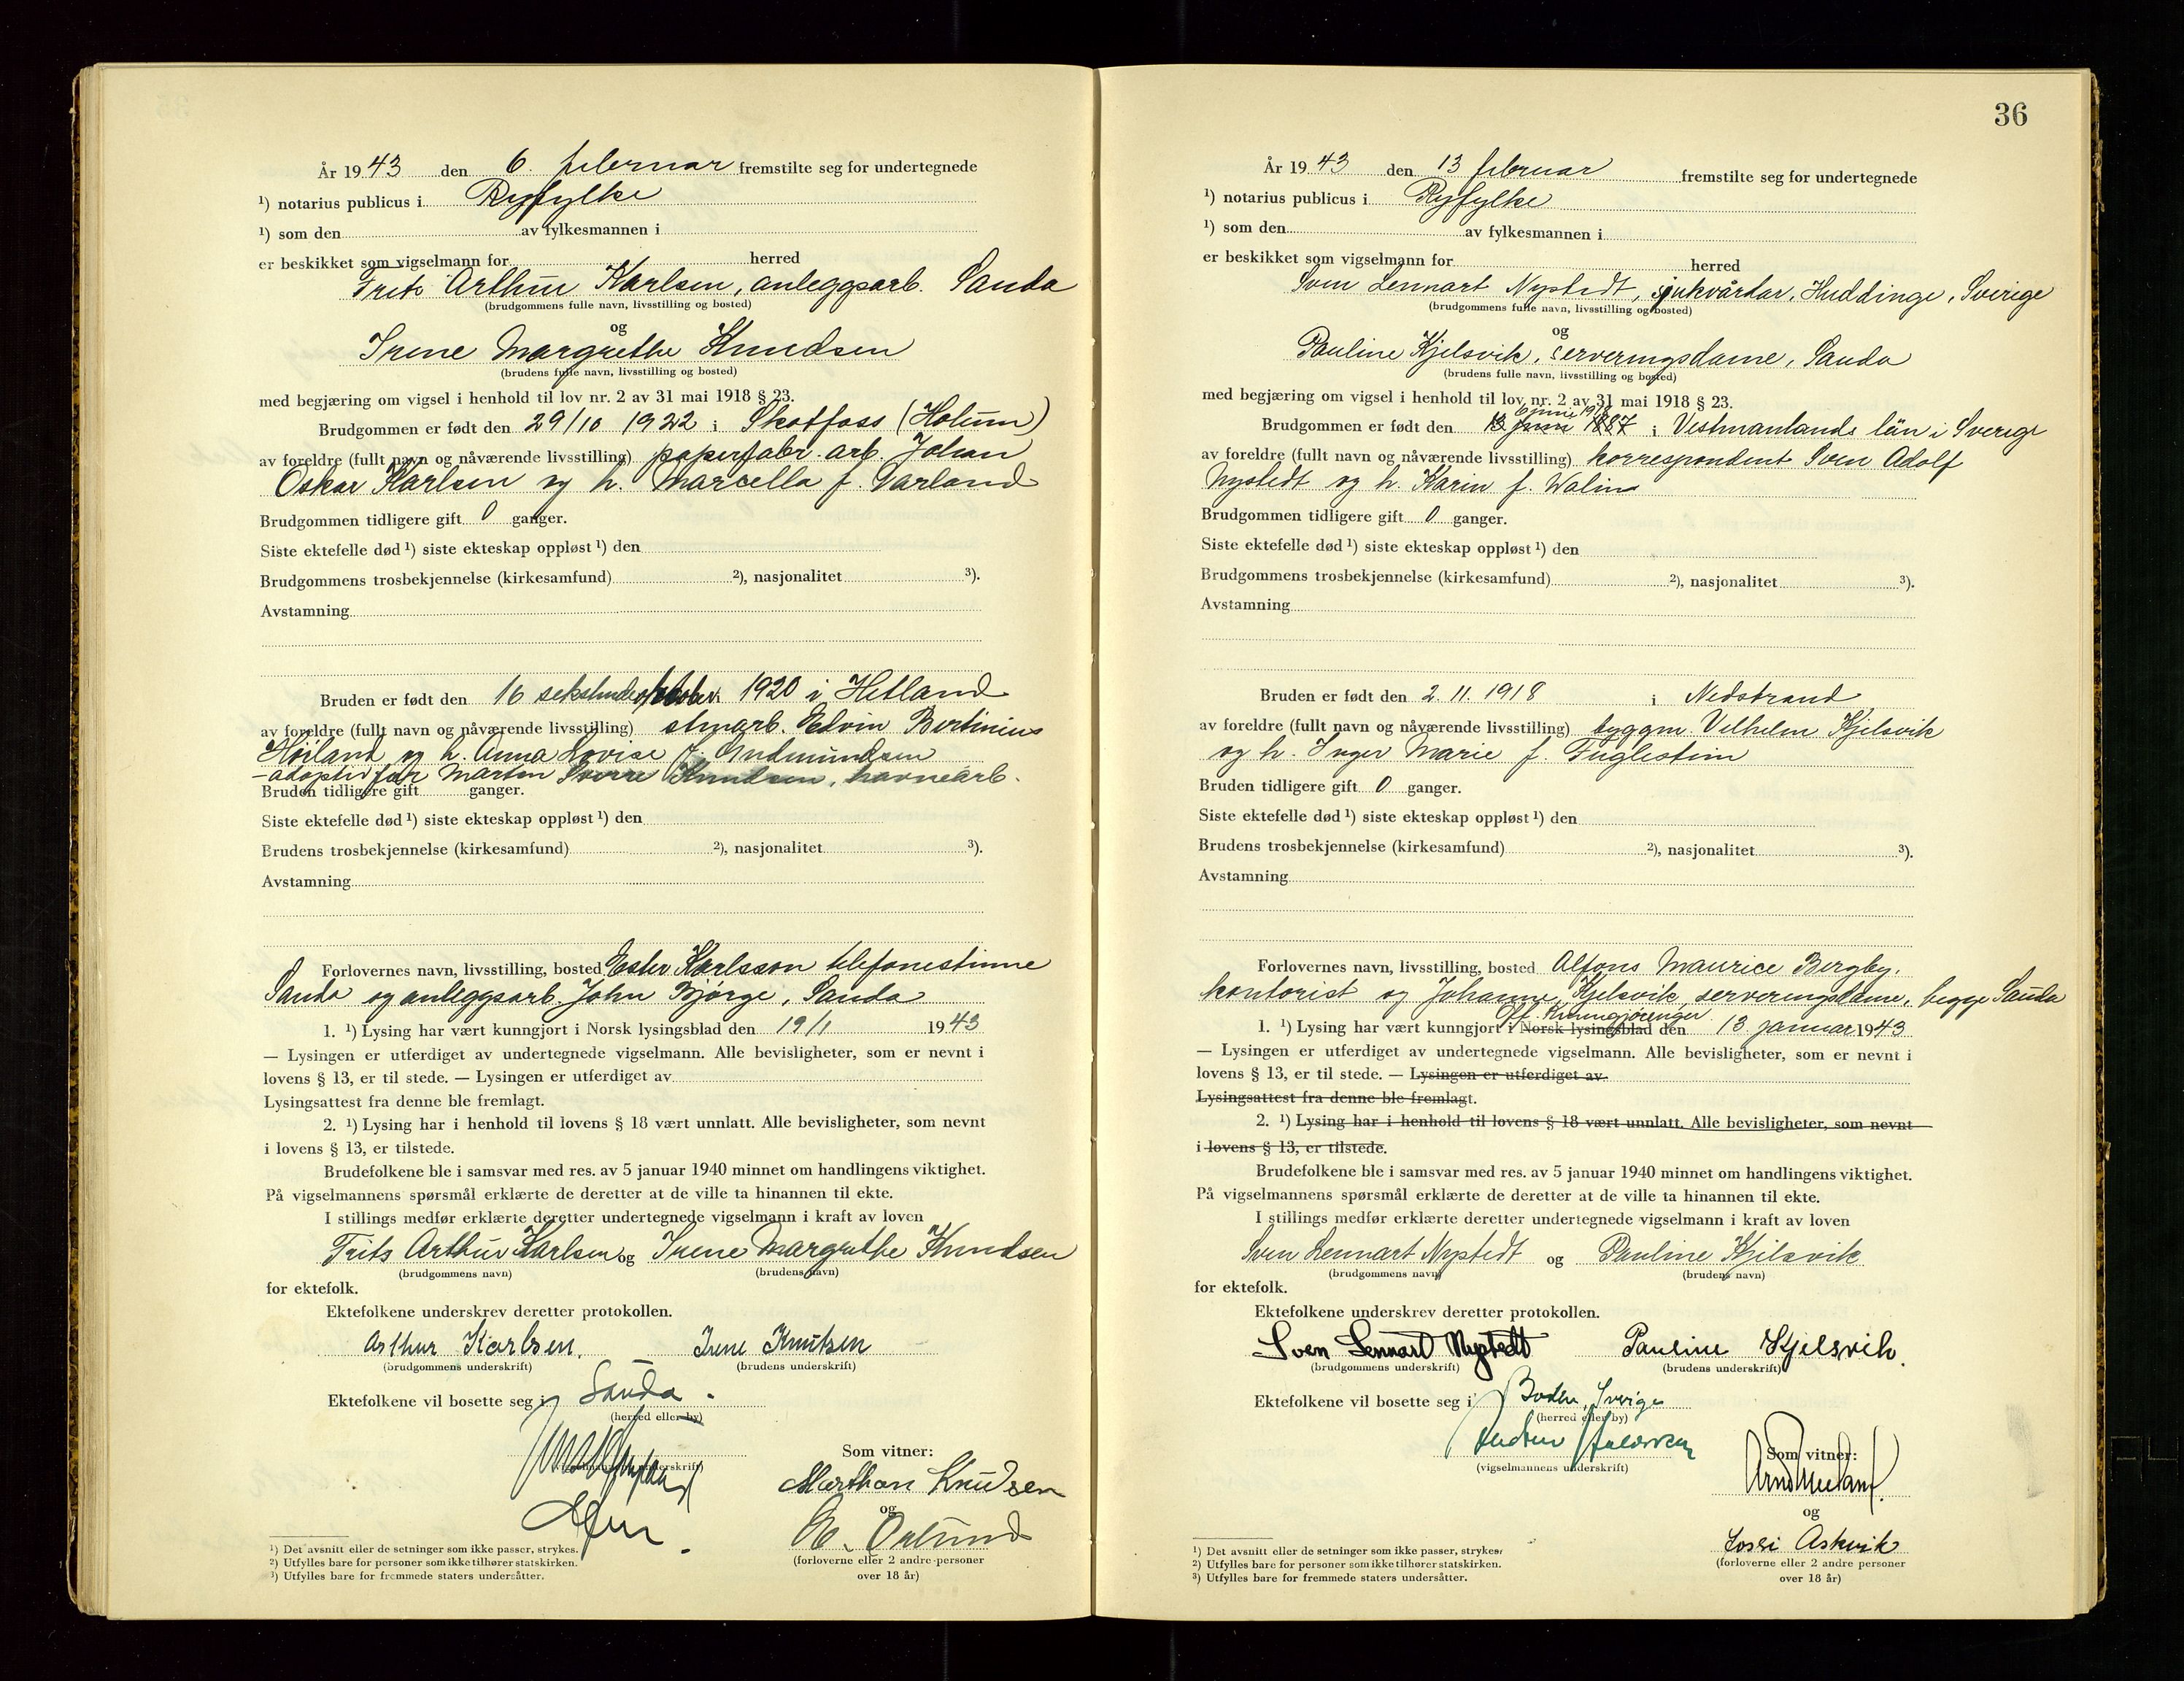 År 1943 den 6. februar fremstilte seg for undertegnede
¹) notarius publicus i Ryfylke
¹) som den av fylkesmannen i
er beskikket som vigselmann for herred
Frits Arthur Karlsen, anleggsarb. Sauda
(brudgommens fulle navn, livsstilling og bosted)
og
Irene Margrethe Knudsen
(brudens fulle navn, livsstilling og bosted)
med begjæring om vigsel i henhold til lov nr. 2 av 31 mai 1918 § 23.
Brudgommen er født den 29/10 1922 i Skotfoss (Holum)
av foreldre (fullt navn og nåværende livsstilling) papirfabr. arb. Johan
Oskar Karlsen og h. Marcella f. Garland
Brudgommen tidligere gift 0 ganger.
Siste ektefelle død ¹) siste ekteskap oppløst ¹) den
Brudgommens trosbekjennelse (kirkesamfund) ²), nasjonalitet ³).
Avstamning
Bruden er født den 16 oktober 1920 i Hetland
av foreldre (fullt navn og nåværende livsstilling) Edvin Bertinius
Høiland og h. Anna Lovise f. Gudmundsen
- adoptivfar Marton Sverre Knudsen, havnearb.
Bruden tidligere gift ganger.
Siste ektefelle død ¹) siste ekteskap oppløst ¹) den
Brudens trosbekjennelse (kirkesamfund) ²), nasjonalitet ³).
Avstamning
Forlovernes navn, livsstilling, bosted Ester Karlsson telefonestinne
Sauda og anleggsarb. John Bjørge, Sauda
1. ¹) Lysing har vært kunngjort i Norsk lysingsblad den 19/1 1943
— Lysingen er utferdiget av undertegnede vigselmann. Alle bevisligheter, som er nevnt i
lovens § 13, er til stede. — Lysingen er utferdiget av
Lysingsattest fra denne ble fremlagt.
2. ¹) Lysing har i henhold til lovens § 18 vært unnlatt. Alle bevisligheter, som nevnt
i lovens § 13, er tilstede.
Brudefolkene ble i samsvar med res. av 5 januar 1940 minnet om handlingens viktighet.
På vigselmannens spørsmål erklærte de deretter at de ville ta hinannen til ekte.
I stillings medfør erklærte deretter undertegnede vigselmann i kraft av loven
Frits Arthur Karlsen og Irene Margrethe Knudsen
(brudgommens navn) (brudens navn)
for ektefolk.
Ektefolkene underskrev deretter protokollen.
Arthur Karlsen. Irene Knutsen
(brudgommens underskrift) (brudens underskrift)
Ektefolkene vil bosette seg i Sauda.
(herred eller by)
Som vitner:
(vigselmannens underskrift)
Marthon Knudsen
og
E. Østund
(forloverne eller 2 andre personer
over 18 år)
¹) Det avsnitt eller de setninger som ikke passer, strykes.
²) Utfylles bare for personer som ikke tilhører statskirken.
³) Utfylles bare for fremmede staters undersåtter.
36
År 1943 den 13 februar fremstilte seg for undertegnede
¹) notarius publicus i Ryfylke
¹) som den av fylkesmannen i
er beskikket som vigselmann for herred
Sven Lennart Nystedt, sjukvårdar, Huddinge, Sverige
(brudgommens fulle navn, livsstilling og bosted)
og
Pauline Kjelsvik, serveringsdame, Sauda
(brudens fulle navn, livsstilling og bosted)
med begjæring om vigsel i henhold til lov nr. 2 av 31 mai 1918 § 23.
6 juni 1918
Brudgommen er født den 13 juni 1887 i Vestmanlands län i Sverige
av foreldre (fullt navn og nåværende livsstilling) korrespondent Sven Adolf
Nystedt og h. Karin f. Walin
Brudgommen tidligere gift 0 ganger.
Siste ektefelle død ¹) siste ekteskap oppløst ¹) den
Brudgommens trosbekjennelse (kirkesamfund) ²), nasjonalitet ³).
Avstamning
Bruden er født den 2. 11. 1918 i Nedstrand
av foreldre (fullt navn og nåværende livsstilling) byggm. Vilhelm Kjelsvik
og h. Inger Marie f. Fuglestein
Bruden tidligere gift 0 ganger.
Siste ektefelle død ¹) siste ekteskap oppløst ¹) den
Brudens trosbekjennelse (kirkesamfund) ²), nasjonalitet ³).
Avstamning
Forlovernes navn, livsstilling, bosted Alfons Maurice Bergby,
kontorist og Johanne Kjelsvik, serveringsdame, begge Sauda
Off. Kunngjøringer
1. ¹) Lysing har vært kunngjort i Norsk lysingsblad den 13 januar 1943
— Lysingen er utferdiget av undertegnede vigselmann. Alle bevisligheter, som er nevnt i
lovens § 13, er til stede. — Lysingen er utferdiget av
Lysingsattest fra denne ble fremlagt.
2. ¹) Lysing har i henhold til lovens § 18 vært unnlatt. Alle bevisligheter, som nevnt
i lovens § 13, er tilstede.
Brudefolkene ble i samsvar med res. av 5 januar 1940 minnet om handlingens viktighet.
På vigselmannens spørsmål erklærte de deretter at de ville ta hinannen til ekte.
I stillings medfør erklærte deretter undertegnede vigselmann i kraft av loven
Sven Lennart Nystedt og Pauline Kjelsvik
(brudgommens navn) (brudens navn)
for ektefolk.
Ektefolkene underskrev deretter protokollen.
Sven Lennart Nystedt Pauline Kjelsvik.
(brudgommens underskrift) (brudens underskrift)
Ektefolkene vil bosette seg i Boden, Sverige
(herred eller by)
Som vitner:
(vigselmannens underskrift)
og
Lossi Askvik
(forloverne eller 2 andre personer
over 18 år)
¹) Det avsnitt eller de setninger som ikke passer, strykes.
²) Utfylles bare for personer som ikke tilhører statskirken.
³) Utfylles bare for fremmede staters undersåtter.